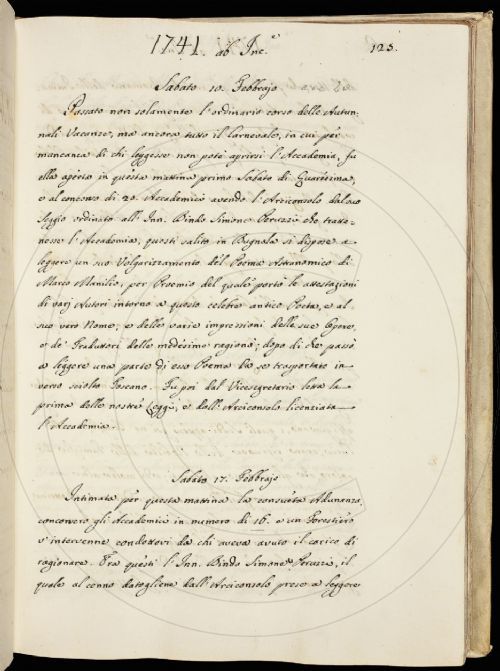 1741. ab Inc.e
123.
Sabato 10. Febbrajo
Passato non solamente l'ordinario corso delle Autun-
nali Vacanze, ma ancora tutto il Carnevale, in cui per
mancanza di chi leggesse non potè aprirsi l'Accademia, fu
ella aperta in questa mattina primo Sabato di Quaresima,
e al concorso di 20. Accademici avendo l'Arciconsolo dal suo
Seggio ordinato all'Inn. Bindo Simone Peruzzi che tratte-
nesse l'Accademia, questi salito in Bugnola si dispose a
leggere un suo Volgarizzamento del Poema Astronomico di
Marco Manilio, per Proemio del quale portò le attestazioni
di varj Autori intorno a questo celebre antico Poeta, e al
suo vero Nome, e delle varie impressioni delle sue Opere,
e de' Traduttori delle medesime ragionò; dopo di che passò
a leggere una parte di esso Poema da se trasportato in
verso sciolto Toscano. Fu poi dal Vicesegretario letta la
prima delle nostre Leggi, e dall'Arciconsolo licenziata
l'Accademia.
Sabato 17. Febbrajo
Intimata per questa mattina la consueta Adunanza,
concorsero gli Accademici in numero di 16. e un Forestiero
v'intervenne condottovi da chi aveva avuto il carico di
ragionare. Fra questi l'Inn. Bindo Simone Peruzzi, il
quale al cenno datogliene dall'Arciconsolo prese a leggere